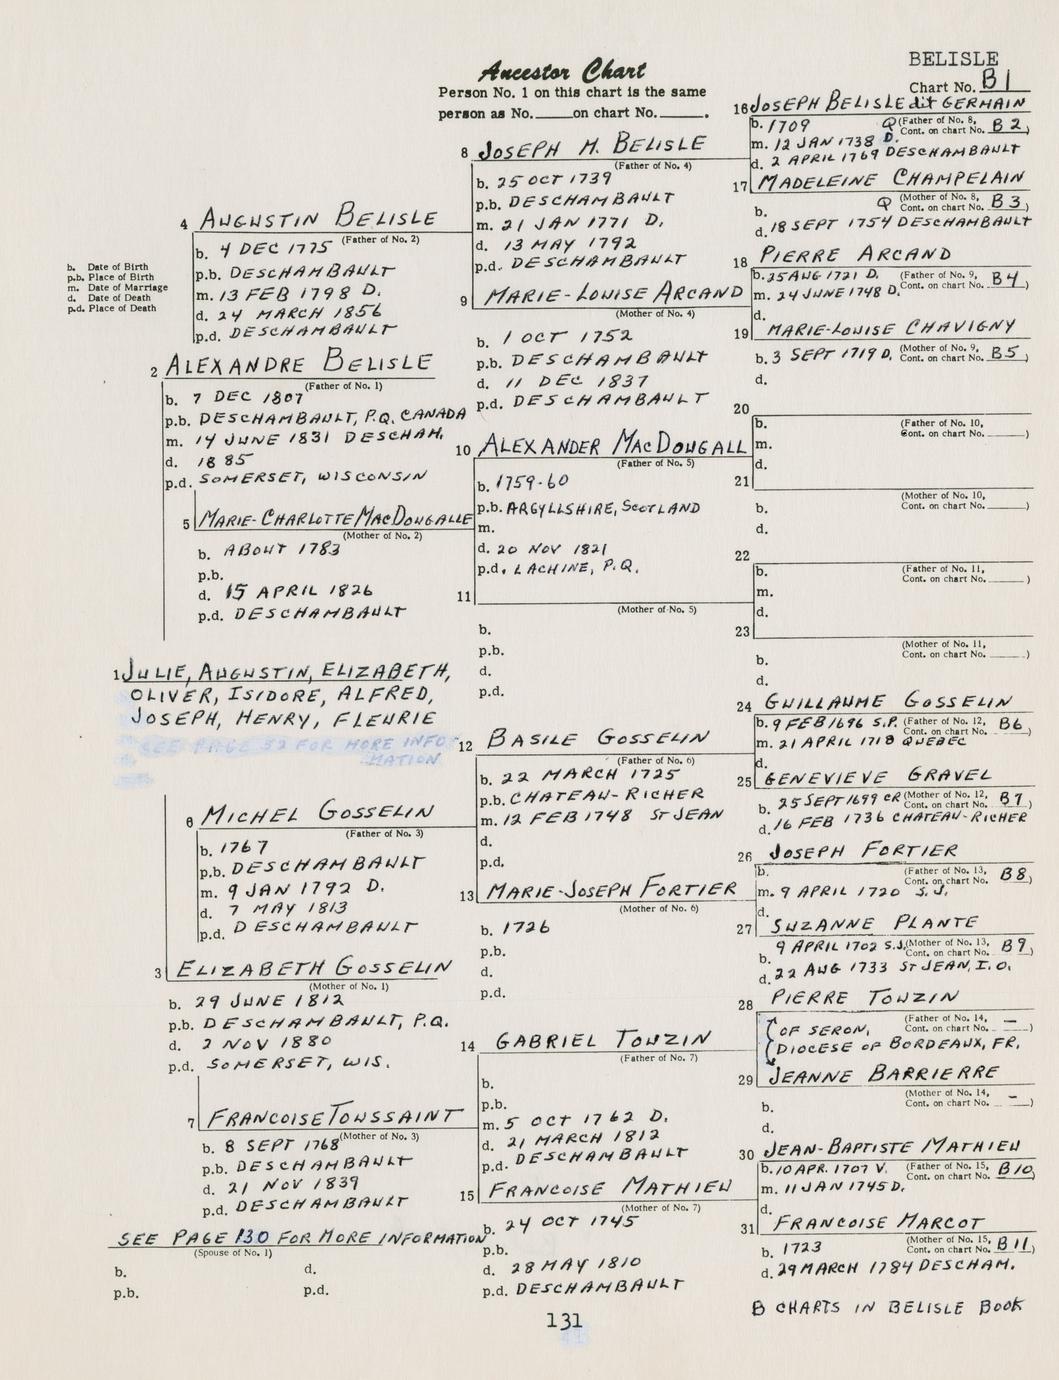 BELISLE
Ancestor Chart
Chart No. B1
Person No. 1 on this chart is the same
person as No. on chart No. .
b. Date of Birth
p.b. Place of Birth
m. Date of Marriage
d. Date of Death
p.d. Place of Death
4 AUGUSTIN BELISLE
(Father of No. 2)
b. 4 DEC 1775
p.b. DESCHAMBAULT
m. 13 FEB 1798 D.
d. 24 MARCH 1856
p.d. DESCHAMBAULT
2 ALEXANDRE BELISLE
(Father of No. 1)
b. 7 DEC 1807
p.b. DESCHAMBAULT, P.Q. CANADA
m. 14 JUNE 1831 DESCHAM.
d. 1885
p.d. SOMERSET, WISCONSIN
5 MARIE-CHARLOTTE MACDOUGALLE
(Mother of No. 2)
b. ABOUT 1783
p.b.
d. 15 APRIL 1826
p.d. DESCHAMBAULT
1 JULIE, AUGUSTIN, ELIZABETH,
OLIVER, ISIDORE, ALFRED,
JOSEPH, HENRY, FLEURIE
SEE PAGE 52 FOR MORE INFO
MATION
6 MICHEL GOSSELIN
(Father of No. 3)
b. 1767
p.b. DESCHAMBAULT
m. 9 JAN 1792 D.
d. 7 MAY 1813
p.d. DESCHAMBAULT
3 ELIZABETH GOSSELIN
(Mother of No. 1)
b. 29 JUNE 1812
p.b. DESCHAMBAULT, P.Q.
d. 2 NOV 1880
p.d. SOMERSET, WIS.
7 FRANCOISE TOUSSAINT
(Mother of No. 3)
b. 8 SEPT 1768
p.b. DESCHAMBAULT
d. 21 NOV 1839
p.d. DESCHAMBAULT
SEE PAGE 130 FOR MORE INFORMATION
(Spouse of No. 1)
b. d.
p.b. p.d.
8 JOSEPH M. BELISLE
(Father of No. 4)
b. 25 OCT 1739
p.b. DESCHAMBAULT
m. 21 JAN 1771 D.
d. 13 MAY 1792
p.d. DESCHAMBAULT
9 MARIE-LOUISE ARCAND
(Mother of No. 4)
b. 1 OCT 1752
p.b. DESCHAMBAULT
d. 11 DEC 1837
p.d. DESCHAMBAULT
10 ALEXANDER MACDOUGALL
(Father of No. 5)
b. 1759-60
p.b. ARGYLLSHIRE, SCOTLAND
m.
d. 20 NOV 1821
p.d. LACHINE, P.Q.
11
(Mother of No. 5)
b.
p.b.
d.
p.d.
12 BASILE GOSSELIN
(Father of No. 6)
b. 22 MARCH 1725
p.b. CHATEAU-RICHER
m. 12 FEB 1748 ST JEAN
d.
p.d.
13 MARIE-JOSEPH FORTIER
(Mother of No. 6)
b. 1726
p.b.
d.
p.d.
14 GABRIEL TOUZIN
(Father of No. 7)
b.
p.b.
m. 5 OCT 1762 D.
d. 21 MARCH 1812
p.d. DESCHAMBAULT
15 FRANCOISE MATHIEU
(Mother of No. 7)
b. 24 OCT 1745
p.b.
d. 28 MAY 1810
p.d. DESCHAMBAULT
16 JOSEPH BELISLE dit GERMAIN
b. 1709 Q (Father of No. 8,
m. 12 JAN 1738 D. Cont. on chart No. B2)
d. 2 APRIL 1769 DESCHAMBAULT
17 MADELEINE CHAMPELAIN
b. Q (Mother of No. 8,
Cont. on chart No. B3)
d. 18 SEPT 1754 DESCHAMBAULT
18 PIERRE ARCAND
b. 25 AUG 1721 D. (Father of No. 9,
m. 24 JUNE 1748 D. Cont. on chart No. B4)
d.
19 MARIE-LOUISE CHAVIGNY
b. 3 SEPT 1719 D. (Mother of No. 9,
Cont. on chart No. B5)
d.
20
b. (Father of No. 10,
m. Cont. on chart No. )
d.
21
(Mother of No. 10,
b. Cont. on chart No. )
d.
22
b. (Father of No. 11,
m. Cont. on chart No. )
d.
23
(Mother of No. 11,
b. Cont. on chart No. )
d.
24 GUILLAUME GOSSELIN
b. 9 FEB 1696 S.P. (Father of No. 12,
Cont. on chart No. B6)
m. 21 APRIL 1718 QUEBEC
d.
25 GENEVIEVE GRAVEL
b. 25 SEPT 1699 CR (Mother of No. 12,
Cont. on chart No. B7)
d. 16 FEB 1736 CHATEAU-RICHER
26 JOSEPH FORTIER
b. (Father of No. 13,
Cont. on chart No. B8)
m. 9 APRIL 1720 S.J.
d.
27 SUZANNE PLANTE
b. 9 APRIL 1702 S.J. (Mother of No. 13,
Cont. on chart No. B9)
d. 22 AUG 1733 ST JEAN, I.O.
28 PIERRE TOUZIN
(Father of No. 14,
OF SERON, Cont. on chart No. — )
DIOCESE OF BORDEAUX, FR.
29 JEANNE BARRIERRE
(Mother of No. 14,
b. Cont. on chart No. — )
d.
30 JEAN-BAPTISTE MATHIEU
b. 10 APR. 1707 V. (Father of No. 15,
Cont. on chart No. B10)
m. 11 JAN 1745 D.
d.
31 FRANCOISE MARCOT
b. 1723 (Mother of No. 15,
Cont. on chart No. B11)
d. 29 MARCH 1784 DESCHAM.
B CHARTS IN BELISLE BOOK
131